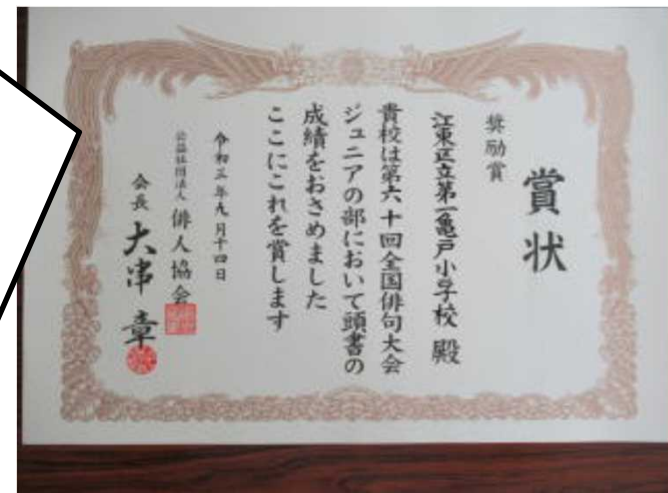 賞状
奨励賞
江東区立第一亀戸小学校 殿
貴校は第六十回全国俳句大会
ジュニアの部において頭書の
成績をおさめました
ここにこれを賞します
令和三年九月十四日
公益社団法人 俳人協会
会長 大串 章